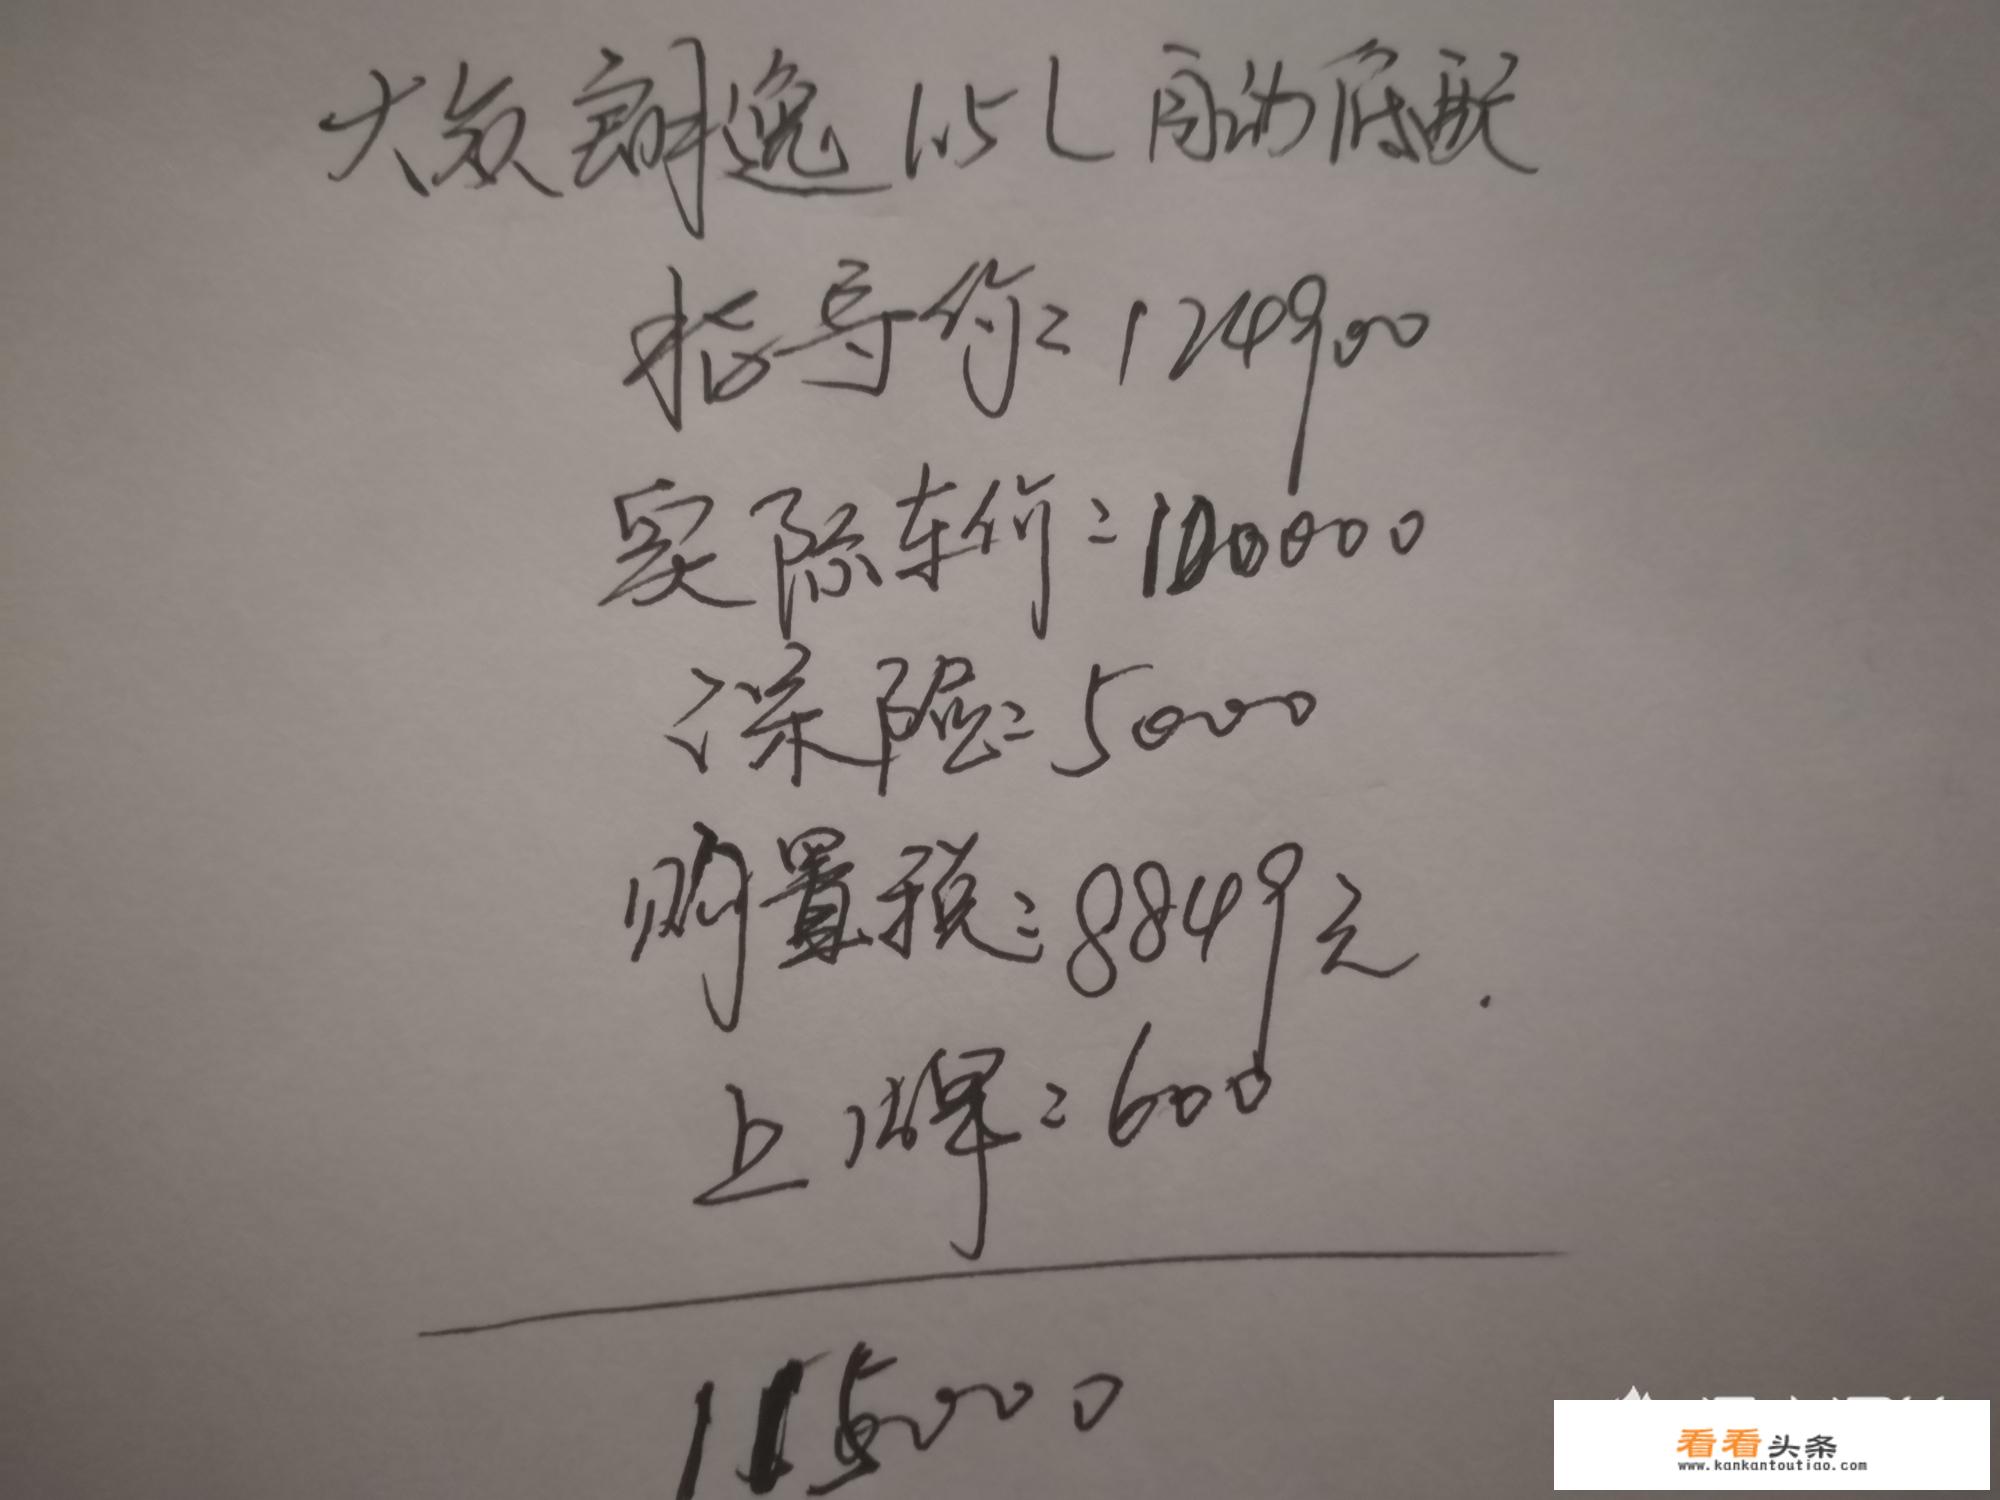 大众朗逸 1.5L 自动底配
指导价:124900
实际车价:100000
保险:5000
购置税:8849元
上牌:600
115000
看看头条
www.kankantoutiao.com